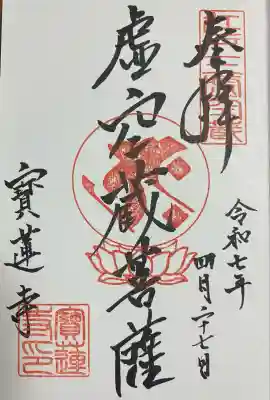 奉拜
令和七年
四月二十七日
虚空蔵菩薩
寶蓮寺
寶蓮寺印